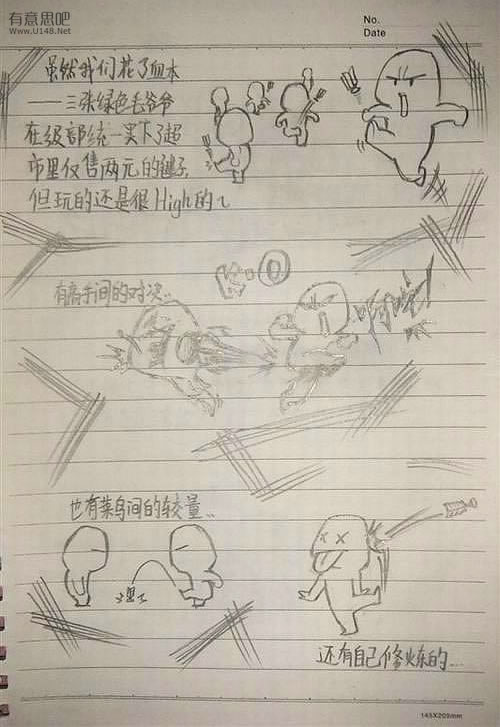 有意思吧
www.U148.Net
No.
Date
虽然我们花了血本
——三张绿色毛爷爷
在级部统一买下了超
市里仅售两元的毽子,
但玩的还是很High的~
有高手间的对决..
K.O
啊哒!
也有菜鸟间的较量..
还有自己修炼的...
145X209mm